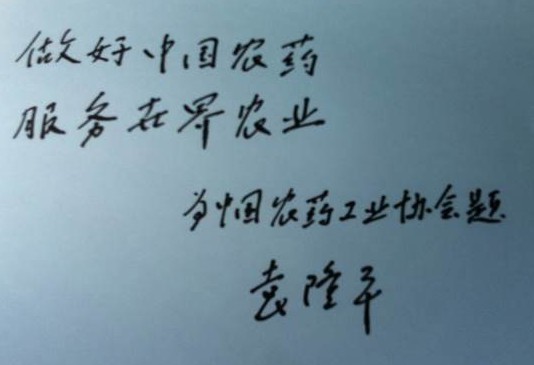 做好中国农药
服务世界农业
为中国农药工业协会题
袁隆平